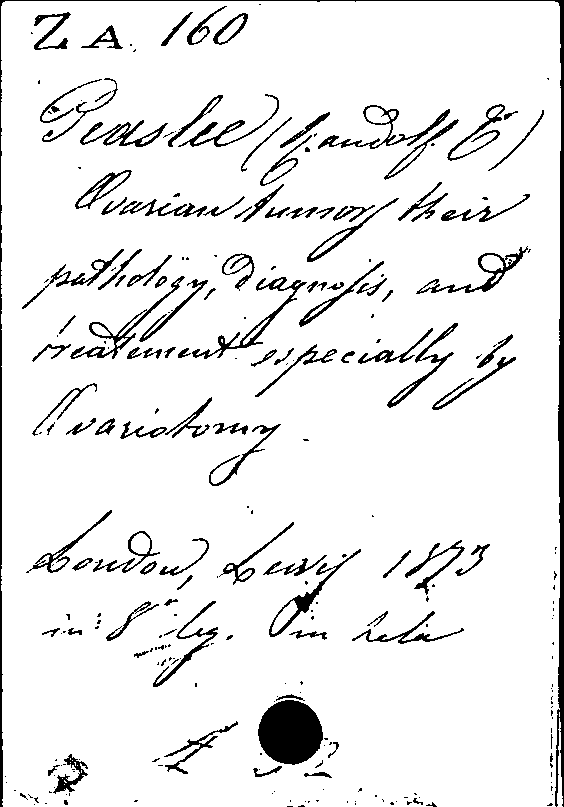 Z A. 160
Peaslee (Randolf. E)
Ovarian tumors their
pathology, diagnosis, and
treatement especially by
Ovariotomy.
London, Lewis 1873
in 8° leg. in tela
A 32